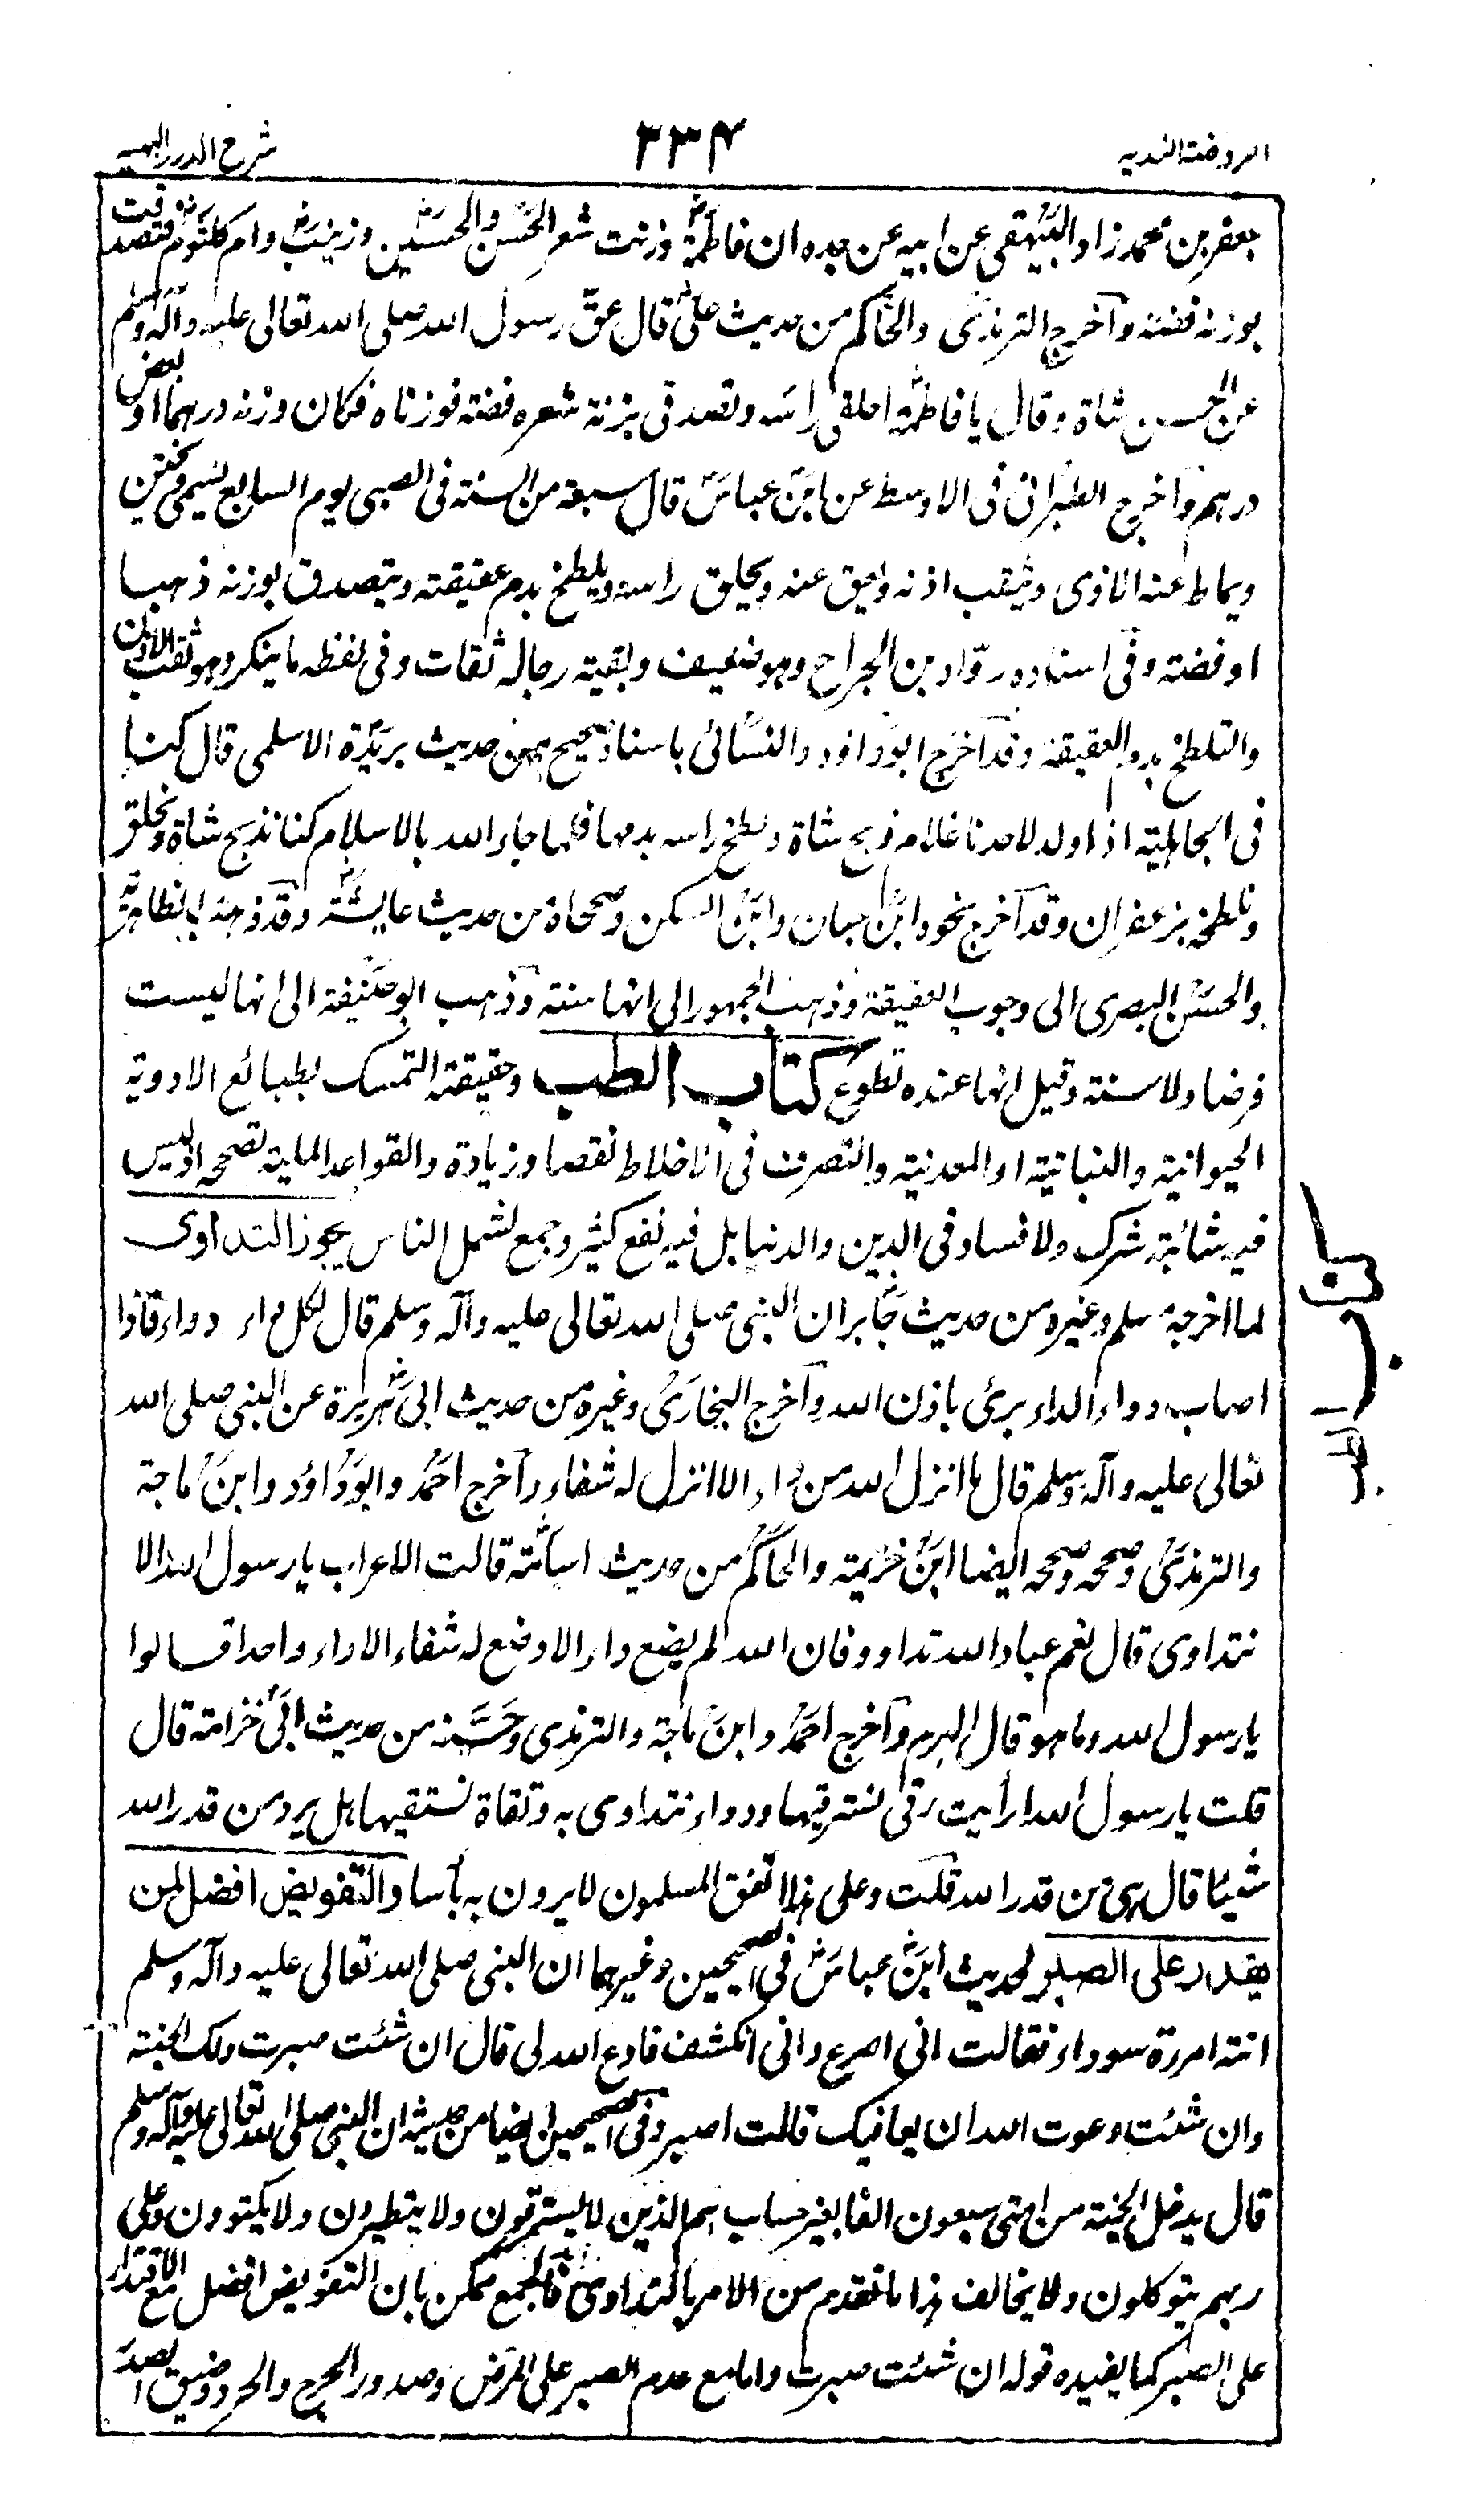 الروضة الندية
٣٣٤
شرح الدرر البهية
جعفر بن محمد زاد البيهقى عن ابيه عن جده ان فاطمة رض وزنت شعر الحسن والحسين وزينب وام كلثوم فتصدقت
بوزنه فضة وآخرج الترمذى والحاكم من حديث على رض قال عق رسول الله صلى الله تعالى عليه وآله وسلم
عن الحسن شاة وقال يا فاطمة احلقى راسه وتصدقى بزنة شعره فضة فوزناه فكان وزنه درهما او بعض
درهم وآخرج الطبرانى فى الاوسط عن ابن عباس قال سبعة من السنة فى الصبى يوم السابع يسمى ويختن
ويماط عنه الاذى وتثقب اذنه ويعق عنه ويحلق راسه ويلطخ بدم عقيقته ويتصدق بوزنه ذهبا
او فضة وفى اسناده رواد بن الجراح وهو ضعيف وبقية رجاله ثقات وفى لفظه ما ينكر وهو ثقب الاذن
والتلطخ بدم العقيقة وقد آخرج ابو داود والنسائى باسناد صحيح من حديث بريدة الاسلمى قال كنا
فى الجاهلية اذا ولد لاحدنا غلام ذبح شاة ولطخ راسه بدمها فلما جاء الله بالاسلام كنا نذبح شاة ونحلق
ونلطخه بزعفران وقد آخرج نحوه ابن حبان وابن السكن وصححاه من حديث عايشة وقد ذهب الظاهرية
والحسن البصرى الى وجوب العقيقة وذهب الجمهور الى انها سنة وذهب ابو حنيفة الى انها ليست
فرضا ولا سنة وقيل انها عنده تطوع كتاب الطب وحقيقته التمسك بطبائع الادوية
الحيوانية والنباتية او المعدنية والتصرف فى الاخلاط نقصا وزيادة والقواعد الملية تصححه اذ ليس
فيه شائبة شرك ولا فساد فى الدين والدنيا بل فيه نفع كثير وجمع لشمل الناس يجوز التداوى
لما اخرجه مسلم وغيره من حديث جابر ان النبى صلى الله تعالى عليه وآله وسلم قال لكل داء دواء فاذا
اصاب دواء الداء برئ باذن الله وآخرج البخارى وغيره من حديث ابى هريرة عن النبى صلى الله
تعالى عليه وآله وسلم قال ما انزل الله من داء الا انزل له شفاء وآخرج احمد وابو داؤد وابن ماجة
والترمذى وصححه وصححه ايضا ابن خزيمة والحاكم من حديث اسامة قالت الاعراب يا رسول الله الا
نتداوى قال نعم عباد الله تداووا فان الله لم يضع داء الا وضع له شفاء الا داء واحدا قالوا
يا رسول الله وما هو قال الهرم وآخرج احمد وابن ماجة والترمذى وحسنه من حديث ابى خزامة قال
قلت يا رسول الله ارأيت رقى نسترقيها ودواء نتداوى به وتقاة نستقيها هل يرد من قدر الله
شيئا قال هى من قدر الله قلت وعلى هذا اتفق المسلمون لا يرون به بأسا والتفويض افضل لمن
يقدر على الصبر لحديث ابن عباس فى الصحيحين وغيرهما ان النبى صلى الله تعالى عليه وآله وسلم
اتته امرءة سوداء فقالت انى اصرع وانى اتكشف فادع الله لى قال ان شئت صبرت ولك الجنة
وان شئت دعوت الله ان يعافيك قالت اصبر وفى الصحيحين ايضا من حديثه ان النبى صلى الله تعالى عليه وآله وسلم
قال يدخل الجنة من امتى سبعون الفا بغير حساب هم الذين لا يسترقون ولا يتطيرون ولا يكتوون وعلى
ربهم يتوكلون ولا يخالف هذا ما تقدم من الامر بالتداوى فالجمع ممكن بان التفويض افضل مع الاقتدار
على الصبر كما يفيده قوله ان شئت صبرت واما مع عدم الصبر على المرض وصدور الحرج والحرد وضيق الصدر